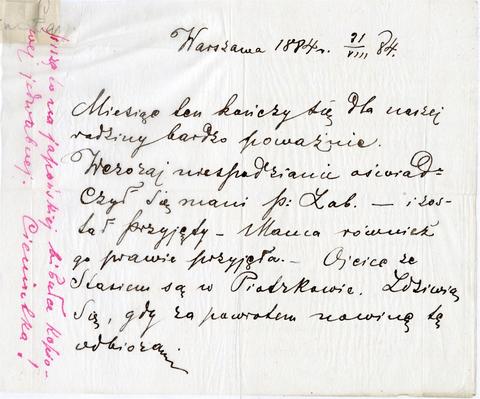 Warszawa 1884 r. 31/VIII 84.
Miesiąc ten kończy się dla naszej
rodziny bardzo poważnie.
Wczoraj niespodzianie oświad-
czył się mani p. Zab. — i zos-
tał przyjęty — Mama również
go prawie przyjęła. — Ojciec ze
Stasiem są w Piotrkowie. Zdziwią
się, gdy za powrotem nowinę tę
odbiorą
na japońskiej bibułce kopio-
wej, jedwabnej.